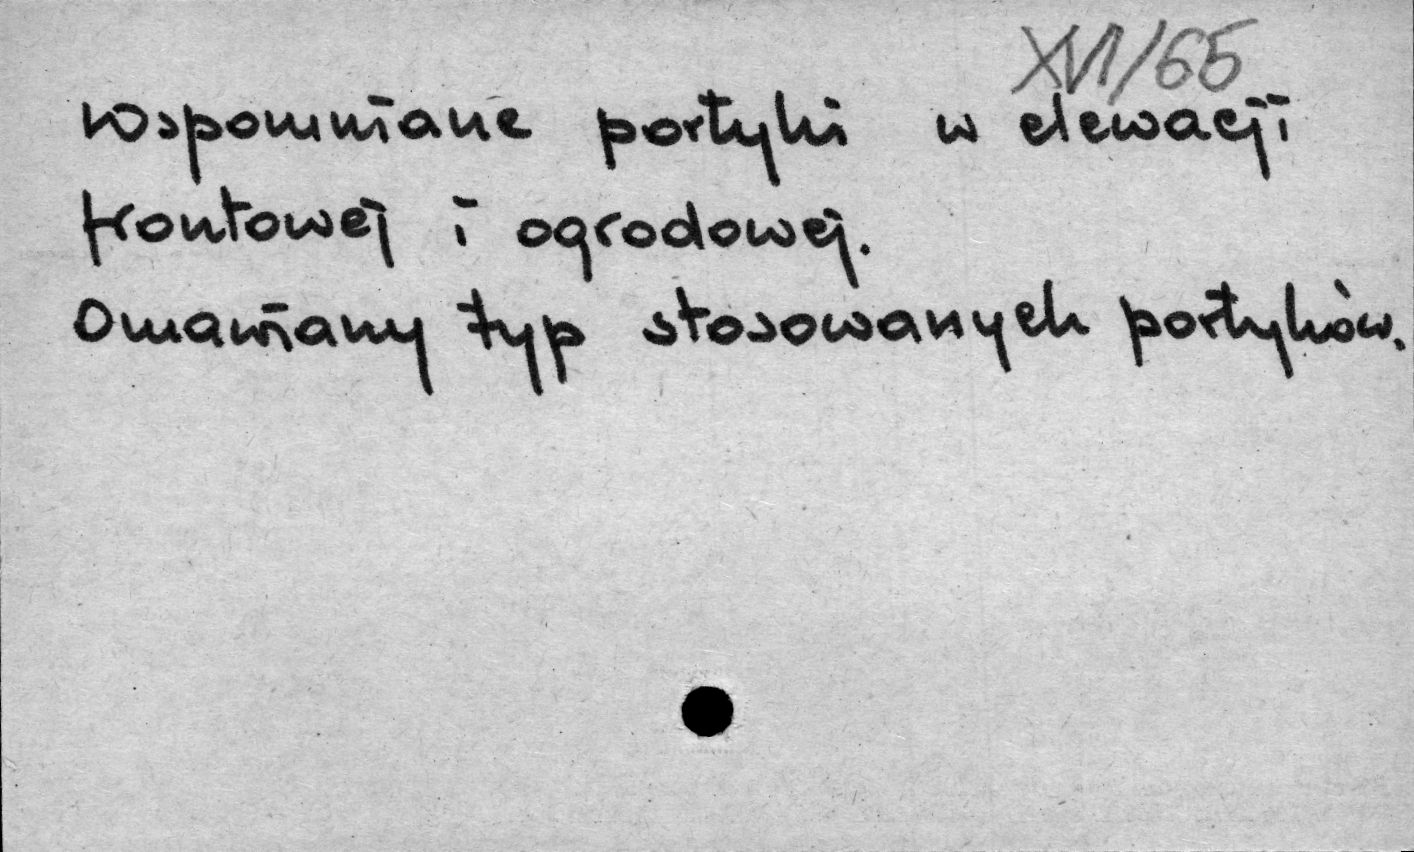 XVI/65
Wspomniane portyki w elewacji
frontowej i ogrodowej.
Omawiany typ stosowanych portyków.